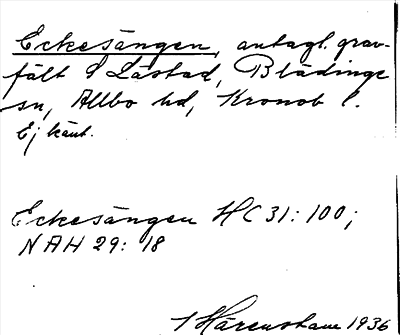 Eckesängen, antagl. grav-
fält S Låstad, Blädinge
sn, Allbo hd, Kronob l.
Ej känt.
Eckesängen HC 31: 100;
NAH 29: 18
1936